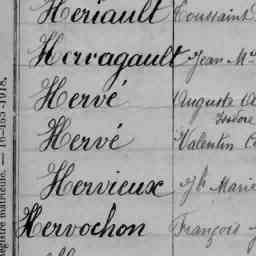 Hériault Toussaint
Hervagault Jean M
Hervé Auguste
Isidore
Hervé Valentin
Hervieux Jh Marie
Hervochon François
Registre matricule. — 16-153-1918.